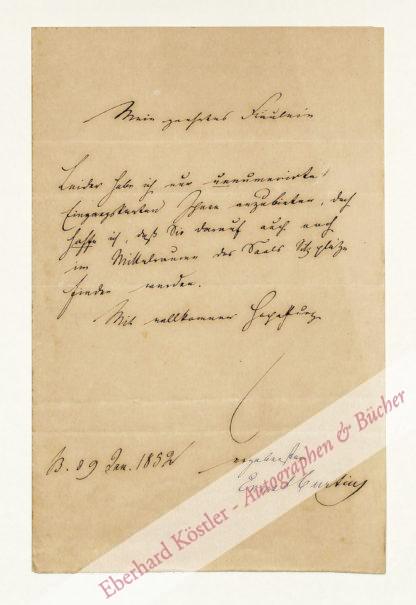 Mein geehrtes Fräulein
Leider habe ich nur unnumerirte
Eingangskarten Ihnen anzubieten, doch
hoffe ich, daß Sie darauf auch noch
im Mittelraume des Saals Sitzplätze
finden werden.
Mit vollkommner Hochachtung
B. 09 Jan. 1852
ergebenster
Ernst Curtius
Eberhard Köstler - Autographen & Bücher